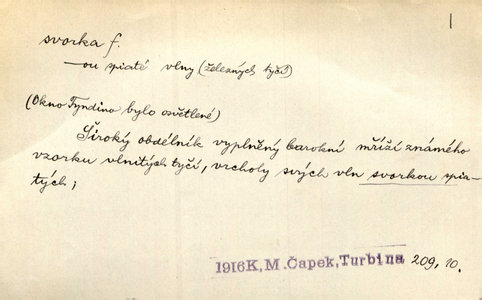 1
svorka f.
—ou spiaté vlny (železných tyčí)
(Okno Tyndino bylo osvětlené)
Široký obdélník vyplněný barokní mříží známého
vzorku vlnitých tyčí, vrcholy svých vln svorkou spia-
tých;
1916K, M. Čapek, Turbina 209, 10.